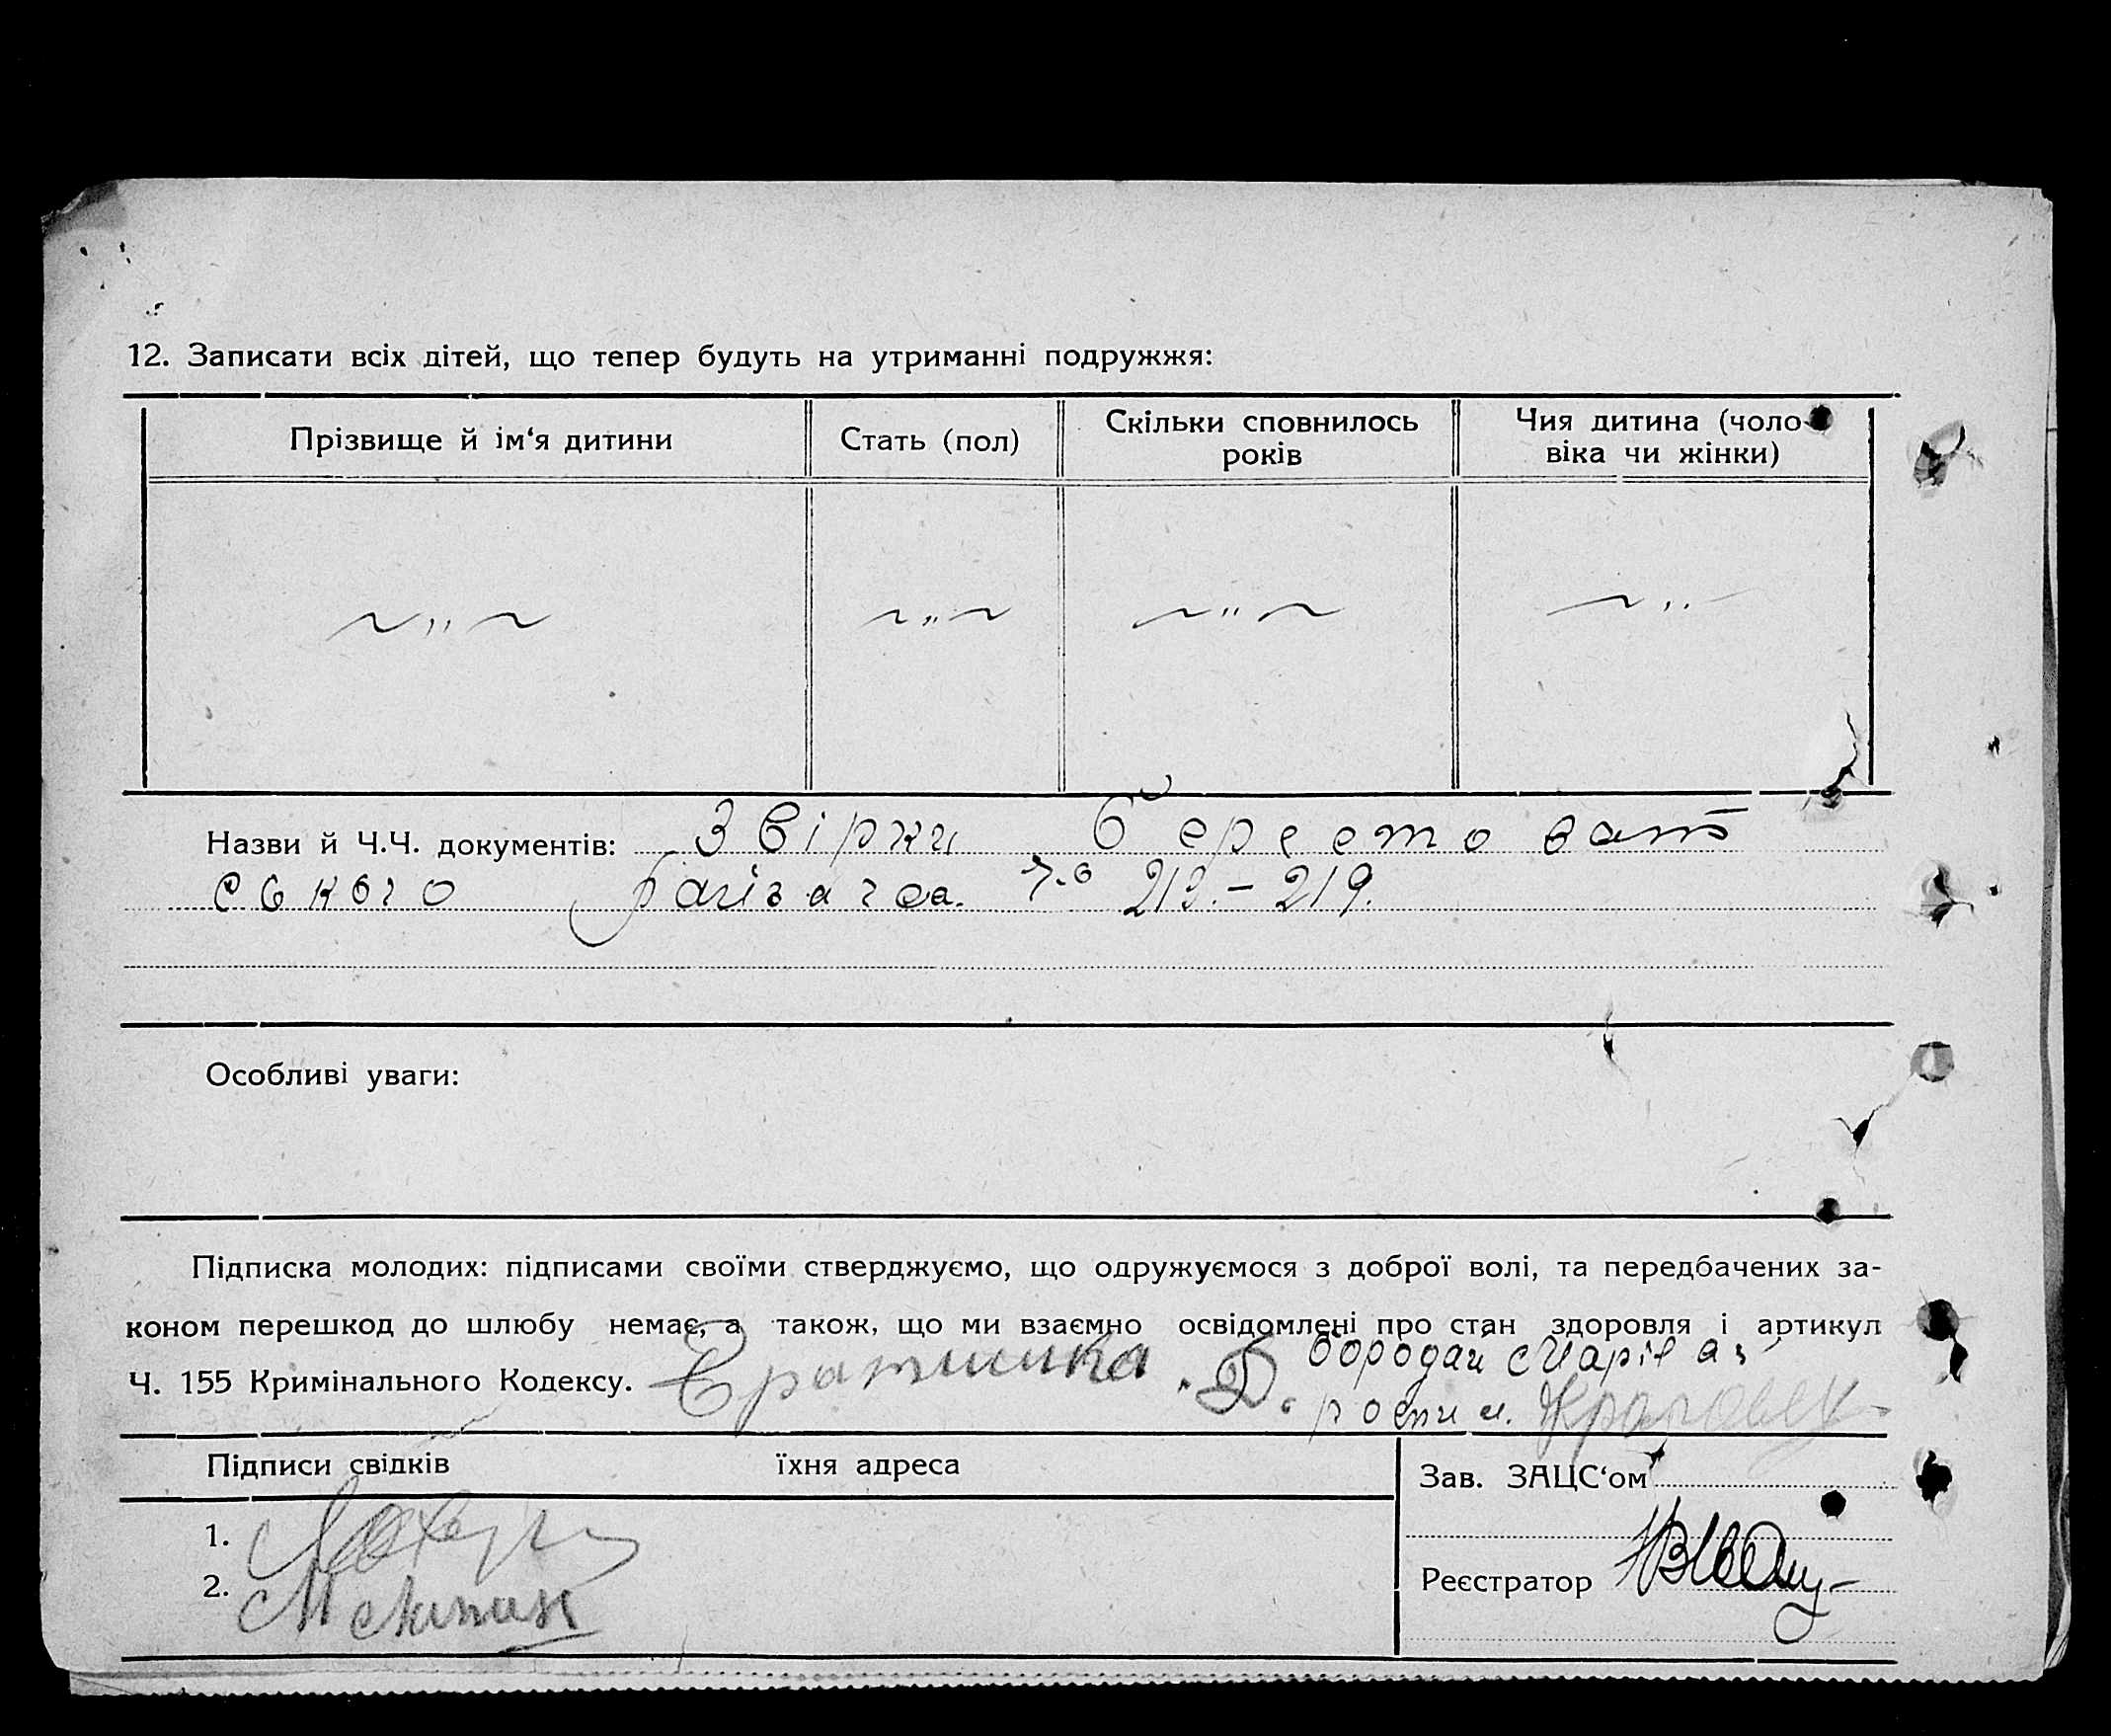 12. Записати всіх дітей, що тепер будуть на утриманні подружжя:
Прізвище й ім‘я дитини
Стать (пол)
Скільки сповнилось
років
Чия дитина (чоло-
віка чи жінки)
~ „ ~
~ „ ~
~ „ ~
~ „
Назви й Ч.Ч. документів: Звірки Берестоват
ського 212. – 219.
Особливі уваги:
Підписка молодих: підписами своїми стверджуємо, що одружуємося з доброї волі, та передбачених за-
коном перешкод до шлюбу немає, а також, що ми взаємно освідомлені про стан здоровля і артикул
Ч. 155 Кримінального Кодексу. Бородай Марія а
Підписи свідків
їхня адреса
Зав. ЗАЦС‘ом
1.
2. Мельник
Реєстратор